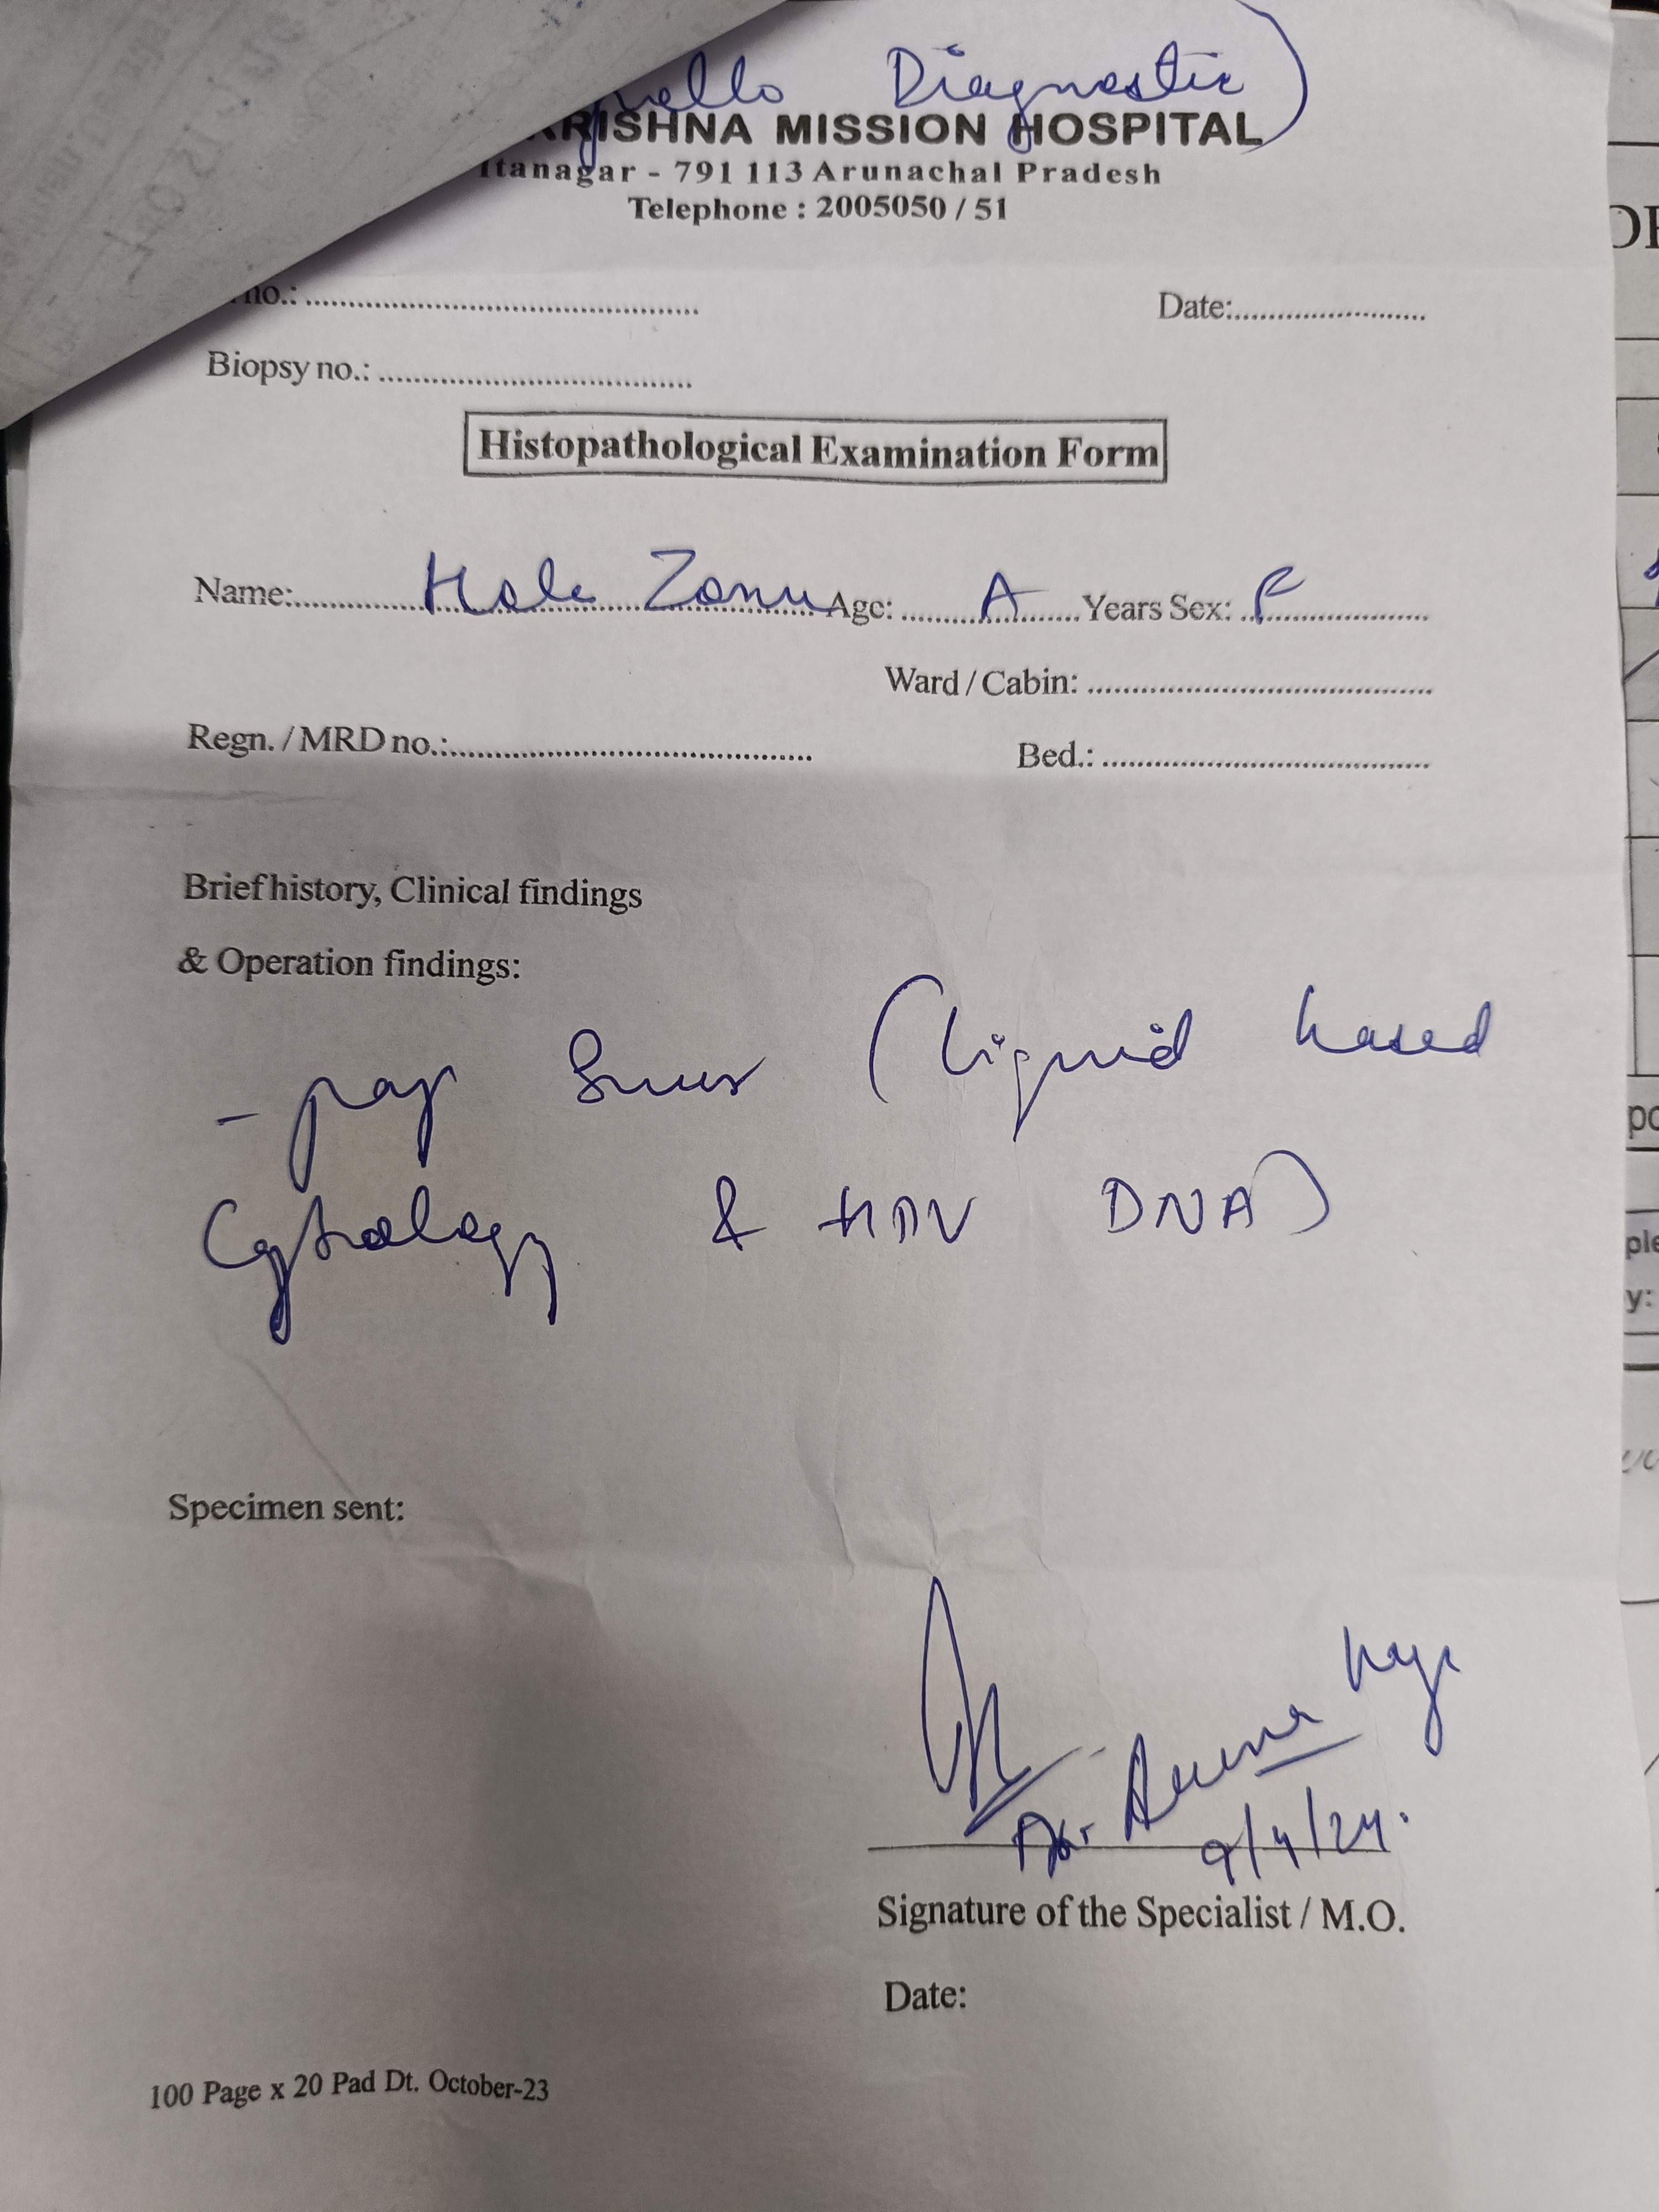 Diagnostic)
KRISHNA MISSION HOSPITAL
Itanagar - 791 113 Arunachal Pradesh
Telephone : 2005050 / 51
no.: ............................................. Date:........................
Biopsy no.: .....................................
Histopathological Examination Form
Name:.......... Hale Zanu Age: ..... A ..... Years Sex: F ..........
Ward / Cabin: ........................................
Regn. / MRD no.:.......................................... Bed.: ......................................
Brief history, Clinical findings
& Operation findings:
- pap Smear (liquid based
Cytology & HPV DNA)
Specimen sent:
Dr. Aruna
9/4/24.
Signature of the Specialist / M.O.
Date:
100 Page x 20 Pad Dt. October-23